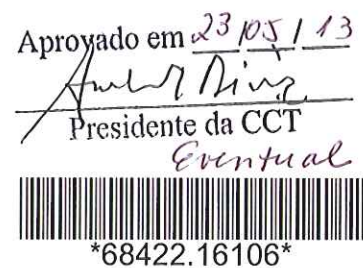 Aprovado em 23/05/13
Presidente da CCT
Eventual
*68422.16106*